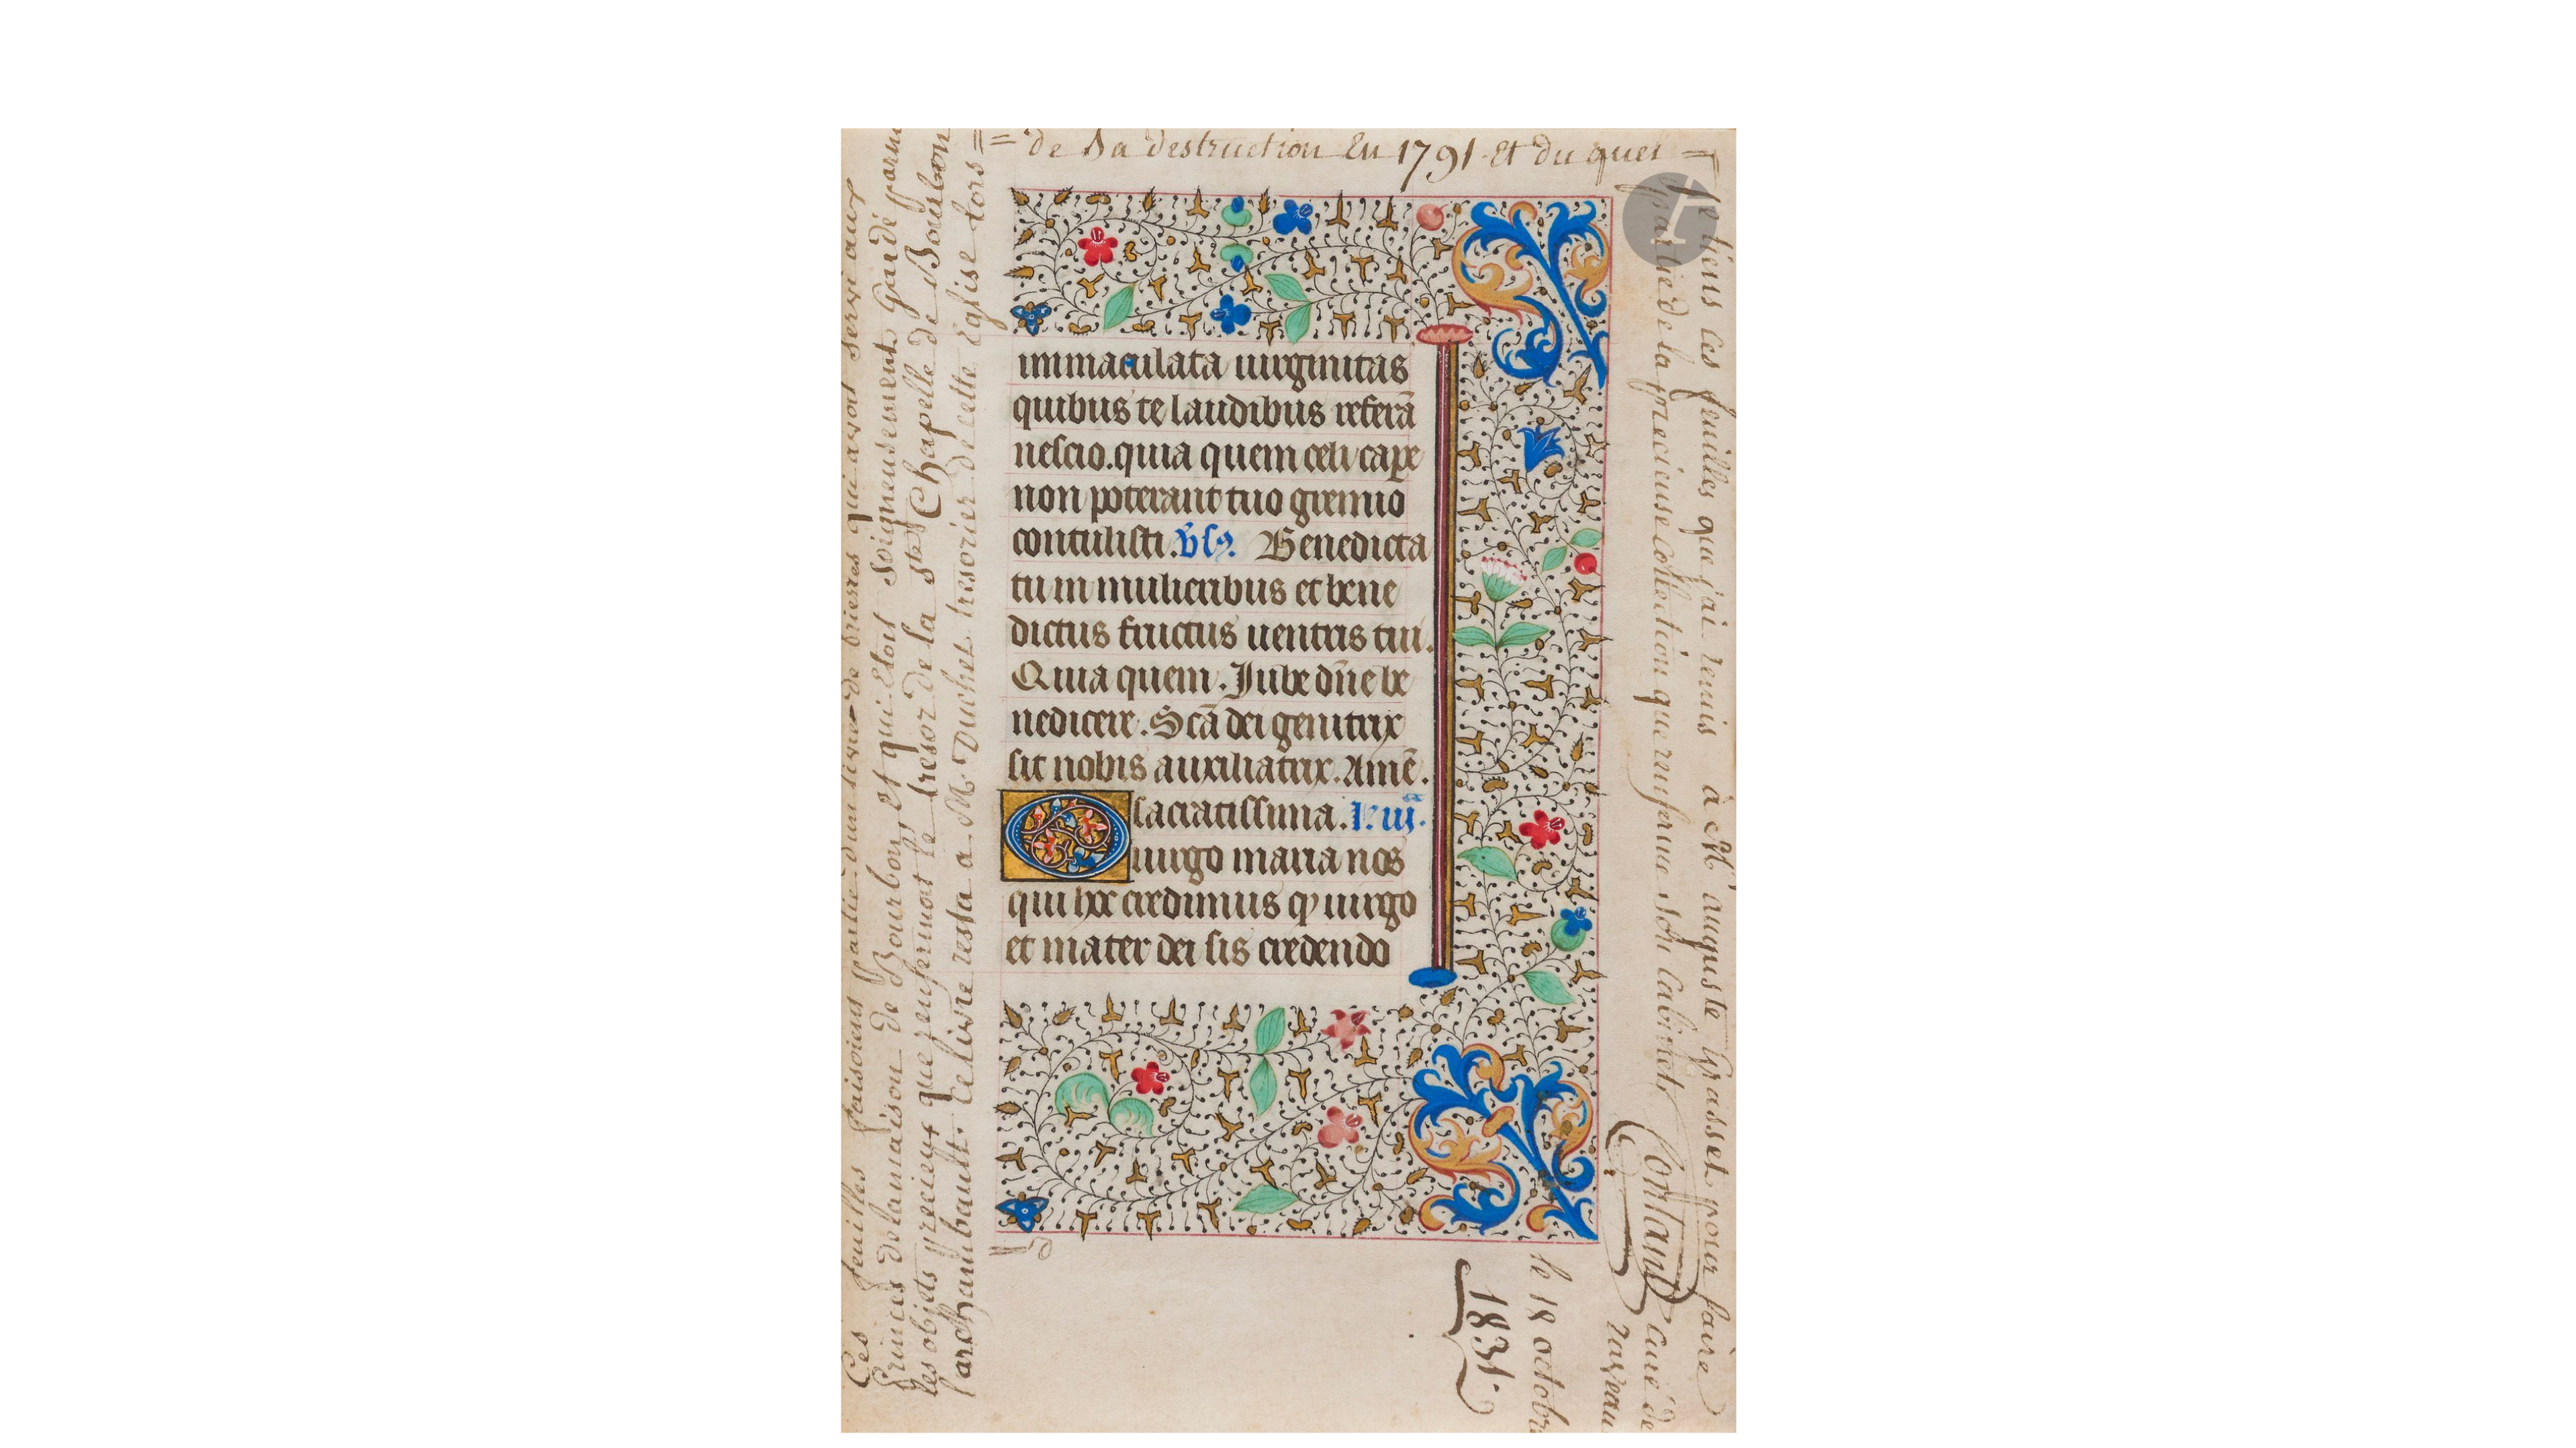 Ces feuilles faisoient partie d'un livre de prieres qui avoit servi aux
Princes de la maison de Bourbon, et qui étoit soigneusement gardé parmi
les objets precieux que renfermoit le tresor de la Ste Chapelle de Bourbon
l'archambault. Ce livre resta a Mr Duchet tresorier de cette Eglise lors =
= de sa destruction En 1791 Et du quel =
je tiens ces feuilles que j'ai remis à Mr auguste Grasset pour faire
partie de la precieuse collection que renferme son Cabinet
curé de
le 18 octobre
1831.
immaculata uirginitas
quibus te laudibus referā
nescio. quia quem celi cape
non poterant tuo gremio
contulisti. Benedicta
tu in mulieribus et bene
dictus fructus uentris tui.
Quia quem. Iube dn̄e be
nedicere. Scā dei genitrix
sit nobis auxiliatrix. Amē.
O sacratissima. l. iij.
uirgo maria nos
qui hec credimus ꝙ uirgo
et mater dei sis credendo